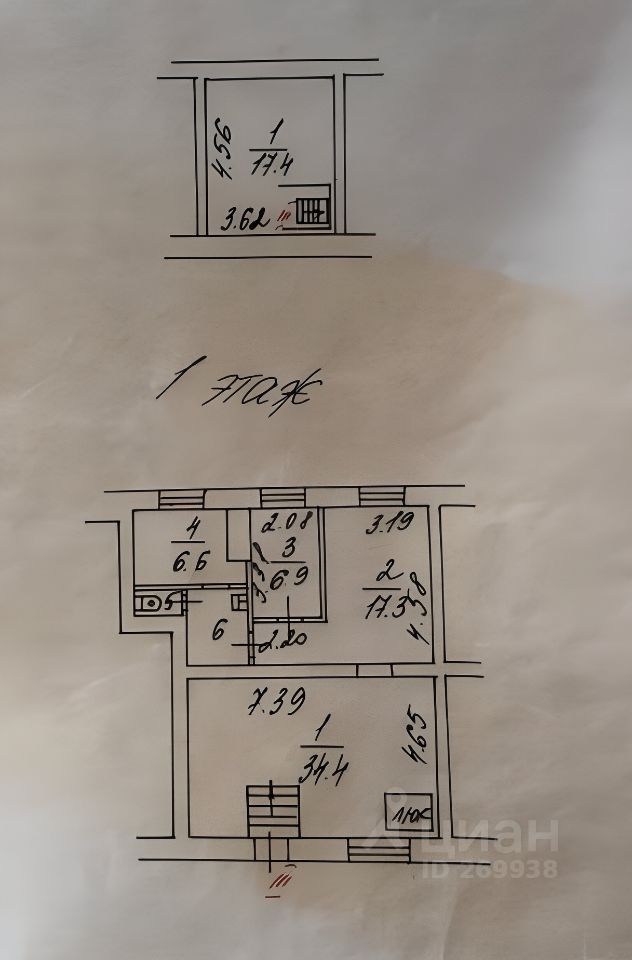 4.56
1
17.4
3.62
III
1 этаж
4
6.6
2.08
3
6.9
3.38
3.19
2
17.3
4.38
5
6
2.20
7.39
1
34.4
4.65
люк
III
циан
ID 269938